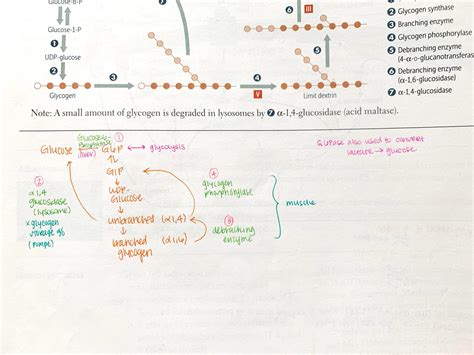 Glucose-6-P
Glucose-1-P
❶
UDP-glucose
❷
❸
Glycogen
❼
❹
V
Limit dextrin
❺
❻
III
❷ Glycogen synthase
❸ Branching enzyme
❹ Glycogen phosphorylase
❺ Debranching enzyme
(4-α-D-glucanotransferas
❻ Debranching enzyme
(α-1,6-glucosidase)
❼ α-1,4-glucosidase
Note: A small amount of glycogen is degraded in lysosomes by ❼ α-1,4-glucosidase (acid maltase).
Glucose-6-
Phosphatase
①
Glucose
G6P ↔ glycolysis
G1P
UDP-
Glucose
unbranched (α1,4)
branched (α1,6)
glycogen
②
α1,4
glucosidase
(lysosome)
* glycogen
storage
(pompe)
④
glycogen
phosphorylase
③
debranching
enzyme
muscle
also used to convert
→ glucose